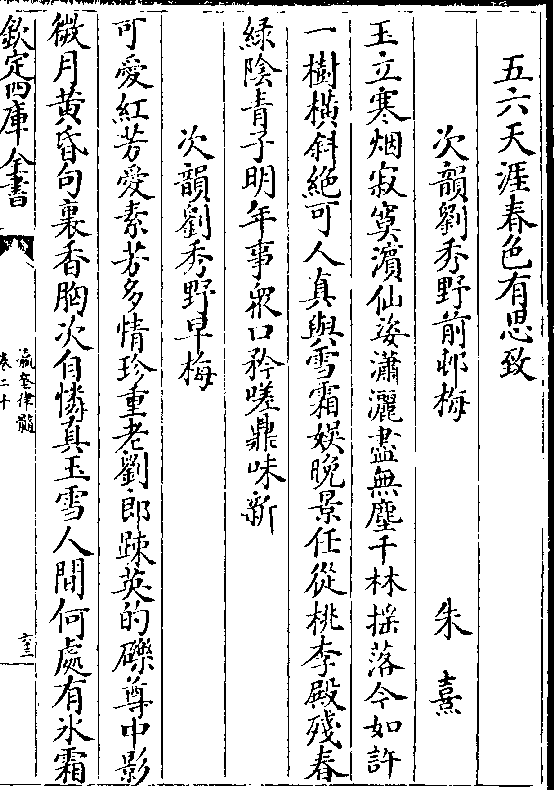 五六天涯春色有思致
次韻劉秀野前邨梅　朱熹
玉立寒烟寂寞濵仙姿瀟灑盡無塵千林揺落今如許
一樹横斜絶可人真與雪霜娱晩景任從桃李殿殘春
緑陰青子明年事衆口矜嗟鼎味新
次韻劉秀野早梅
可愛紅芳愛素芳多情珍重老劉郎疎英的皪尊中影
微月黄昏句裏香胸次自憐真玉雪人間何處有氷霜
欽定四庫全書
瀛奎律髓
卷二十